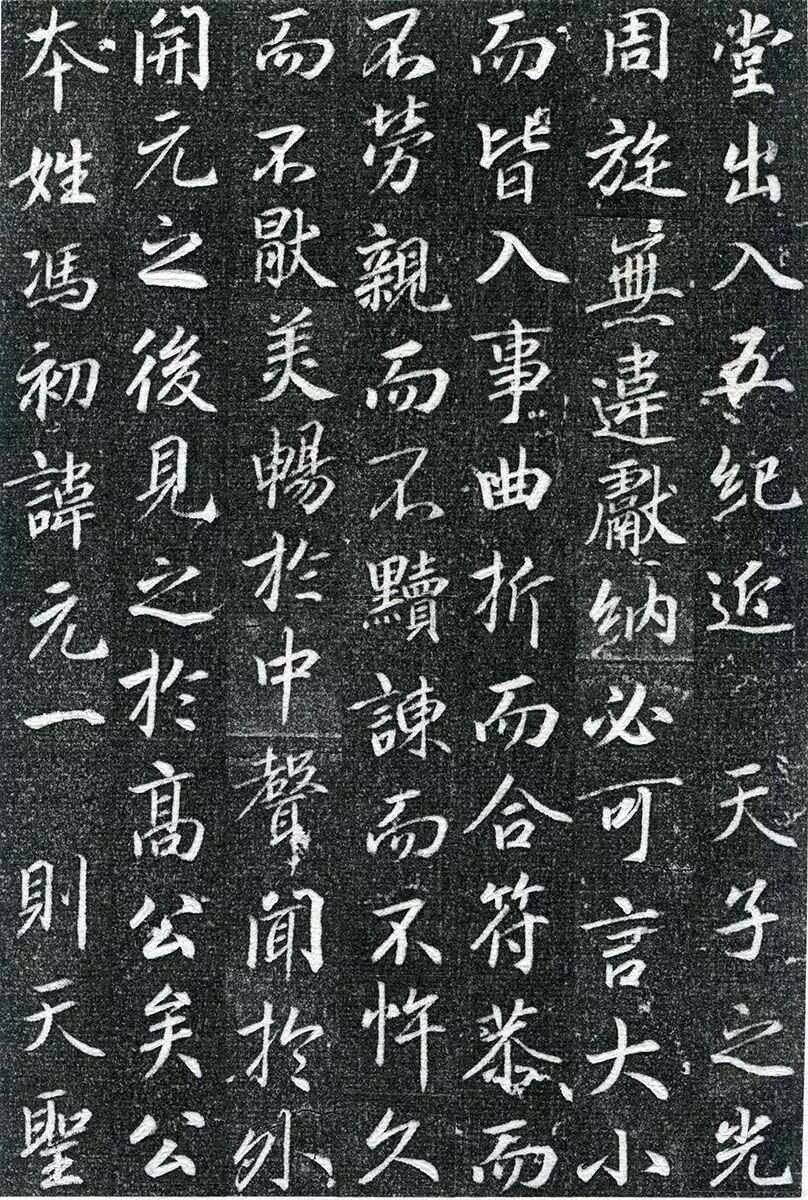 堂出入五紀近天子之光
周旋無違獻納必可言大小
而皆入事曲折而合符恭而
不勞親而不黷諫而不忤久
而不猒美暢於中聲聞於外
開元之後見之於高公矣公
本姓馮初諱元一則天聖